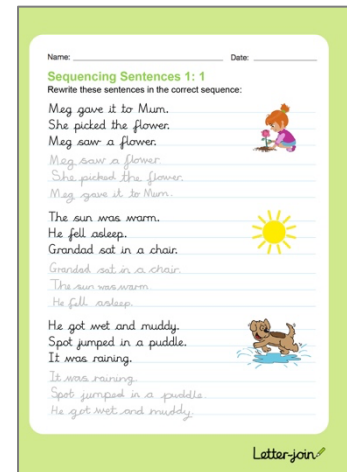 Name: Date:
Sequencing Sentences 1: 1
Rewrite these sentences in the correct sequence:
Meg gave it to Mum.
She picked the flower.
Meg saw a flower.
Meg saw a flower.
She picked the flower.
Meg gave it to Mum.
The sun was warm.
He fell asleep.
Grandad sat in a chair.
Grandad sat in a chair.
The sun was warm
He fell asleep.
He got wet and muddy.
Spot jumped in a puddle.
It was raining.
It was raining.
Spot jumped in a puddle.
He got wet and muddy.
Letter-join